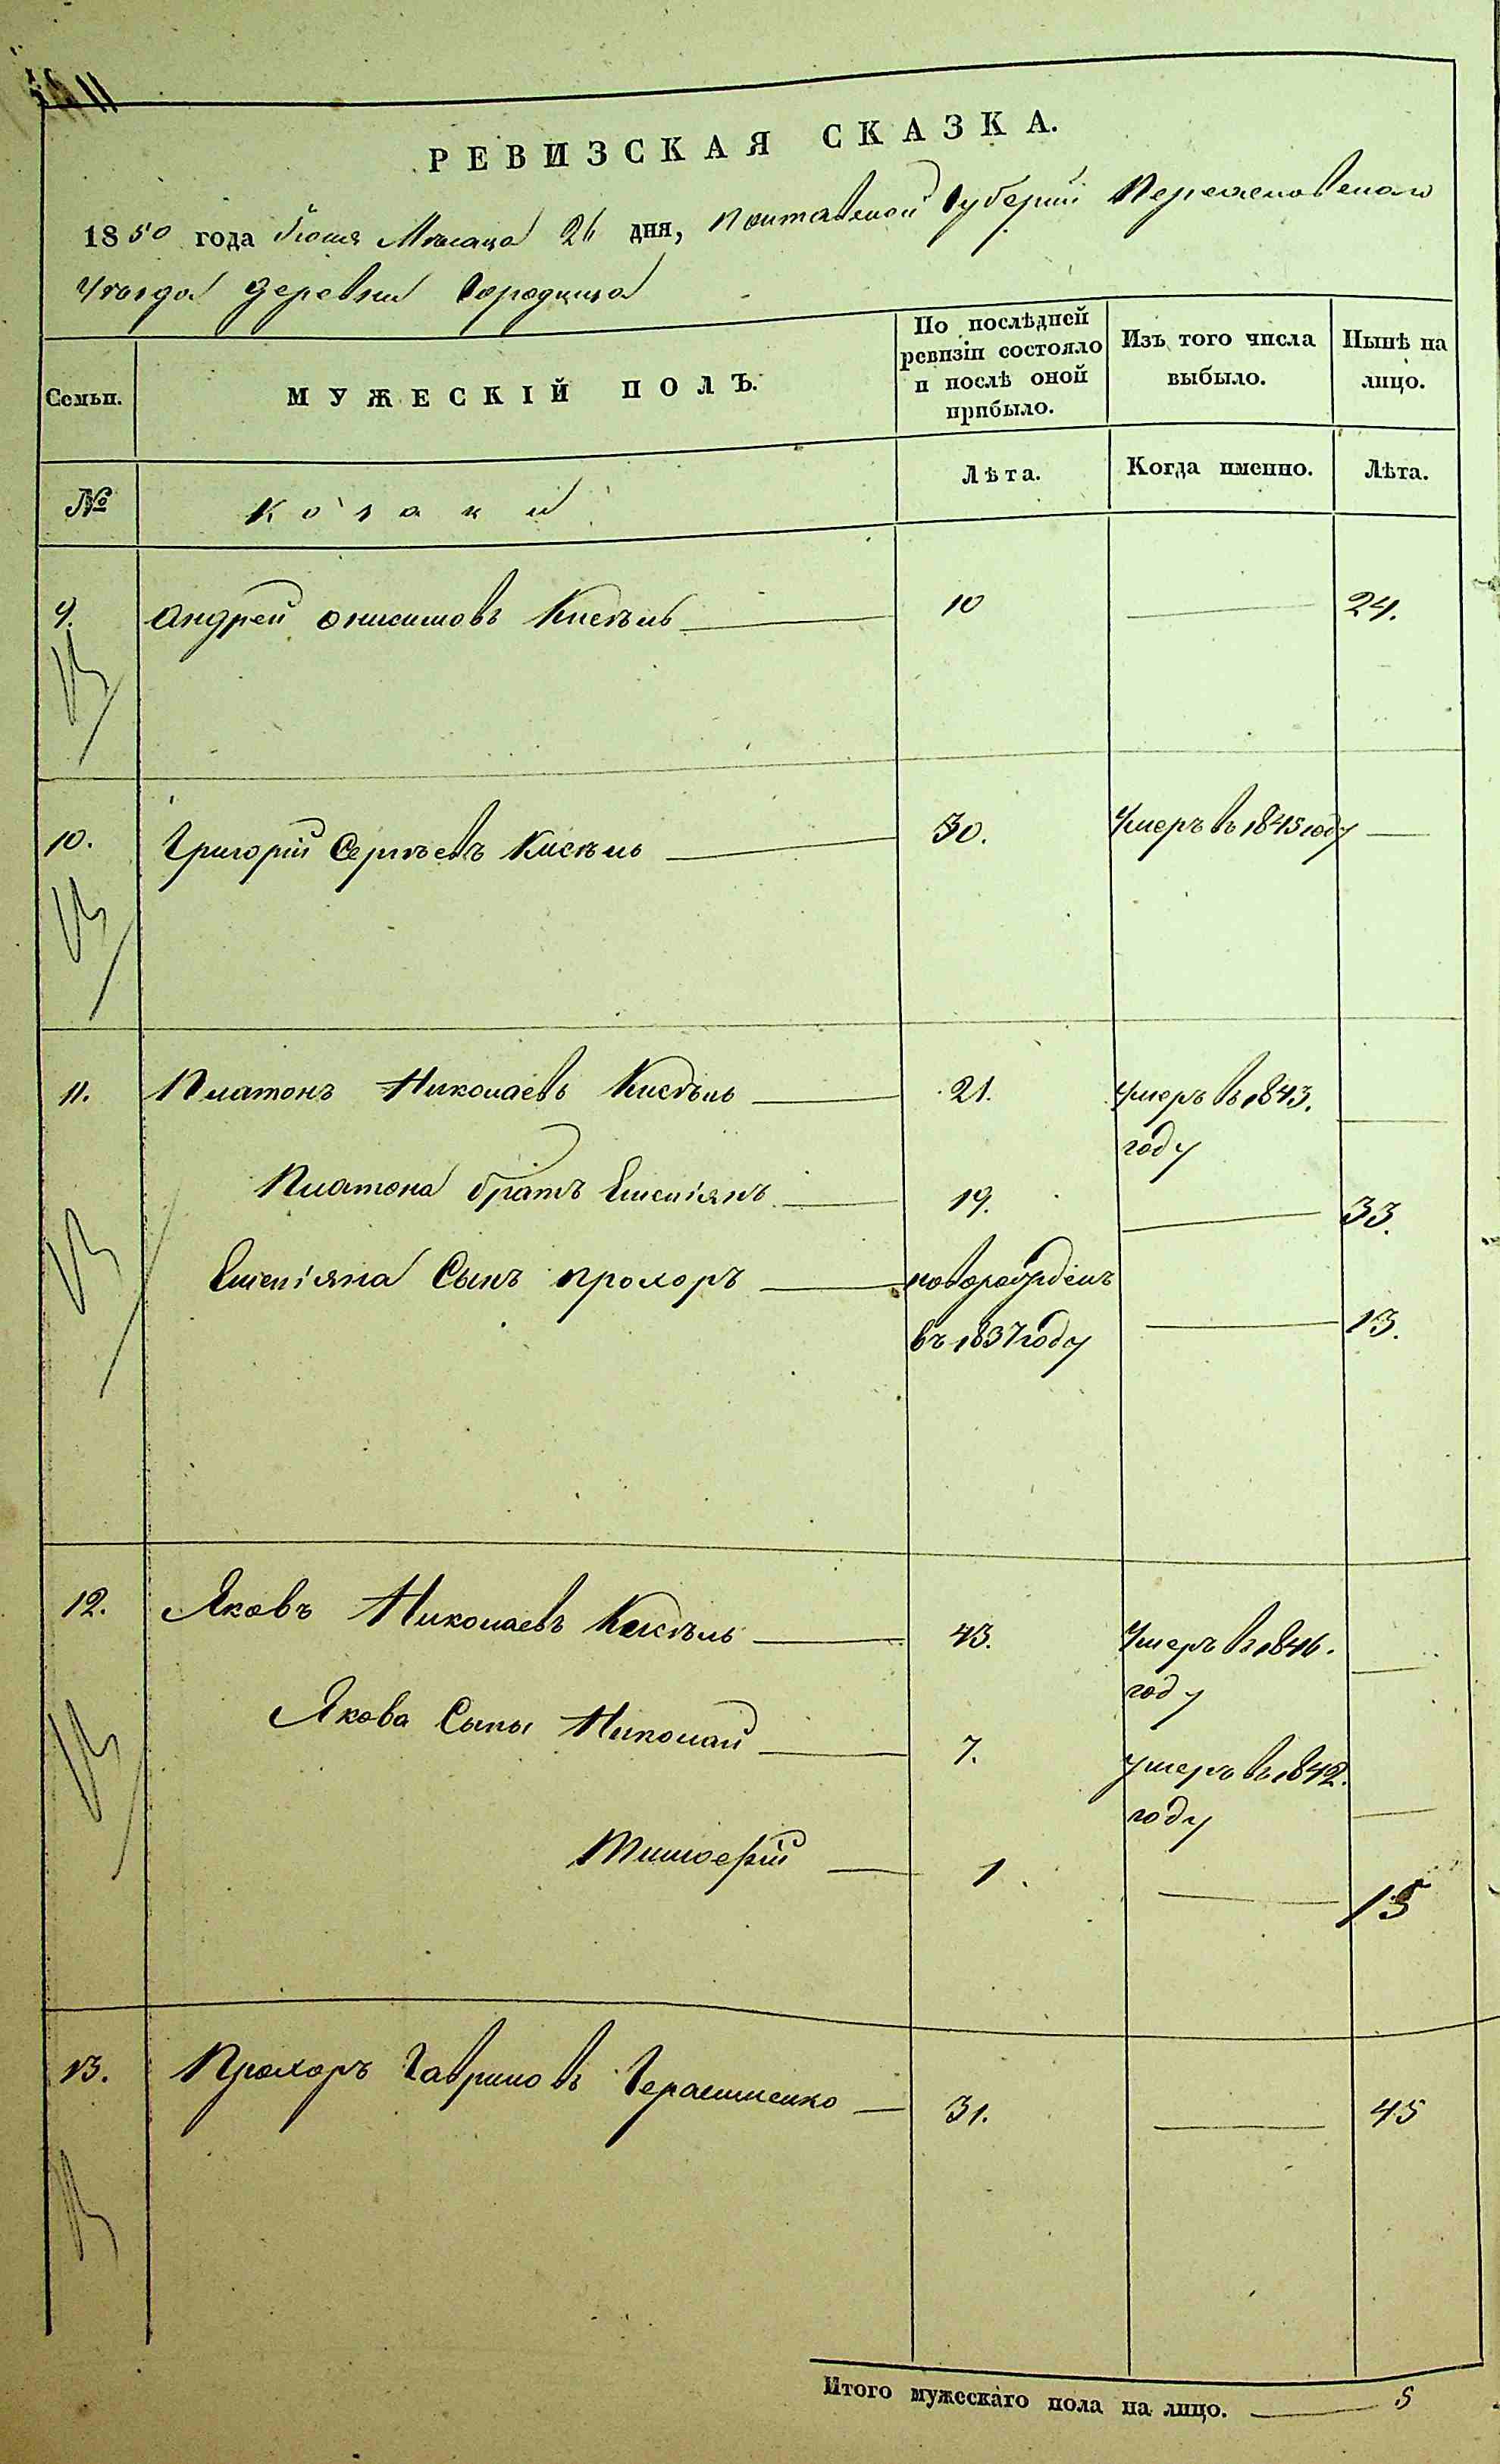 РЕВИЗСКАЯ СКАЗКА.
1850 года Іюня Мѣсяца 26 дня, Полтавской Губерніи Переясловскаго
Уѣзда деревни Городища
Семьи.
МУЖЕСКІЙ ПОЛЪ.
По послѣдней ревизіи состояло и послѣ оной прибыло.
Изъ того числа выбыло.
Нынѣ на лицо.
№
Козаки
Лѣта.
Когда именно.
Лѣта.
9. Андрей Онисимовъ Кисѣль 10 24.
10. Григорій Сергѣевъ Кисѣль 30. Умеръ въ 1845 году
11. Платонъ Николаевъ Кисѣль 21. Умеръ въ 1843.
году
Платона братъ Емельянъ 19. 33.
Емельяна Сынъ Прохоръ новорожденъ
въ 1837 году 13.
12. Яковъ Николаевъ Кисѣль 43. Умеръ въ 1846.
году
Якова Сыны Николай 7. умеръ въ 1842.
году
Тимофій 1. 15
13. Прохоръ Гавриловъ Герасименко 31. 45
Итого мужескаго пола на лицо. 5